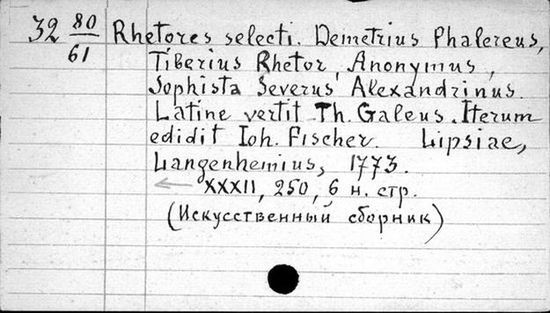 32 80/61 Rhetores selecti. Demetrius Phalereus,
Tiberius Rhetor, Anonymus,
Sophista Severus Alexandrinus.
Latine vertit Th. Galeus. Iterum
edidit Ioh. Fischer. Lipsiae,
Langenhemius, 1773.
← XXXII, 250, 6 н. стр.
(Искусственный сборник)